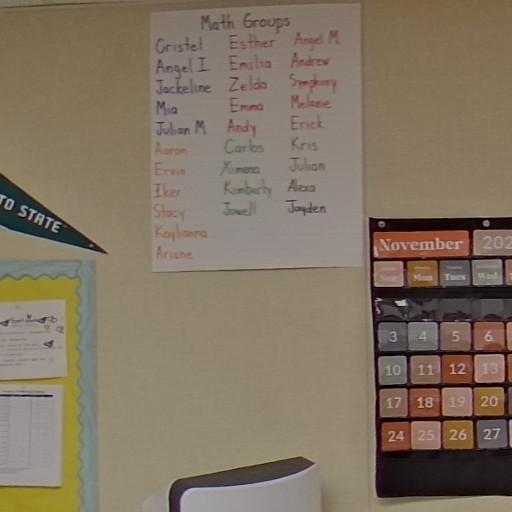 Math Groups
Cristel
Angel I.
Jackeline
Mia
Julian M
Aaron
Ervin
Iker
Stacy
Kaylianna
Ariane
Esther
Emilia
Zelda
Emma
Andy
Carlos
Ximena
Kimberly
Jowell
Angel M.
Andrew
Symphony
Melanie
Erick
Kris
Julian
Alexa
Jayden
TO STATE
November 202
Sun Mon Tues Wed
3 4 5 6
10 11 12 13
17 18 19 20
24 25 26 27